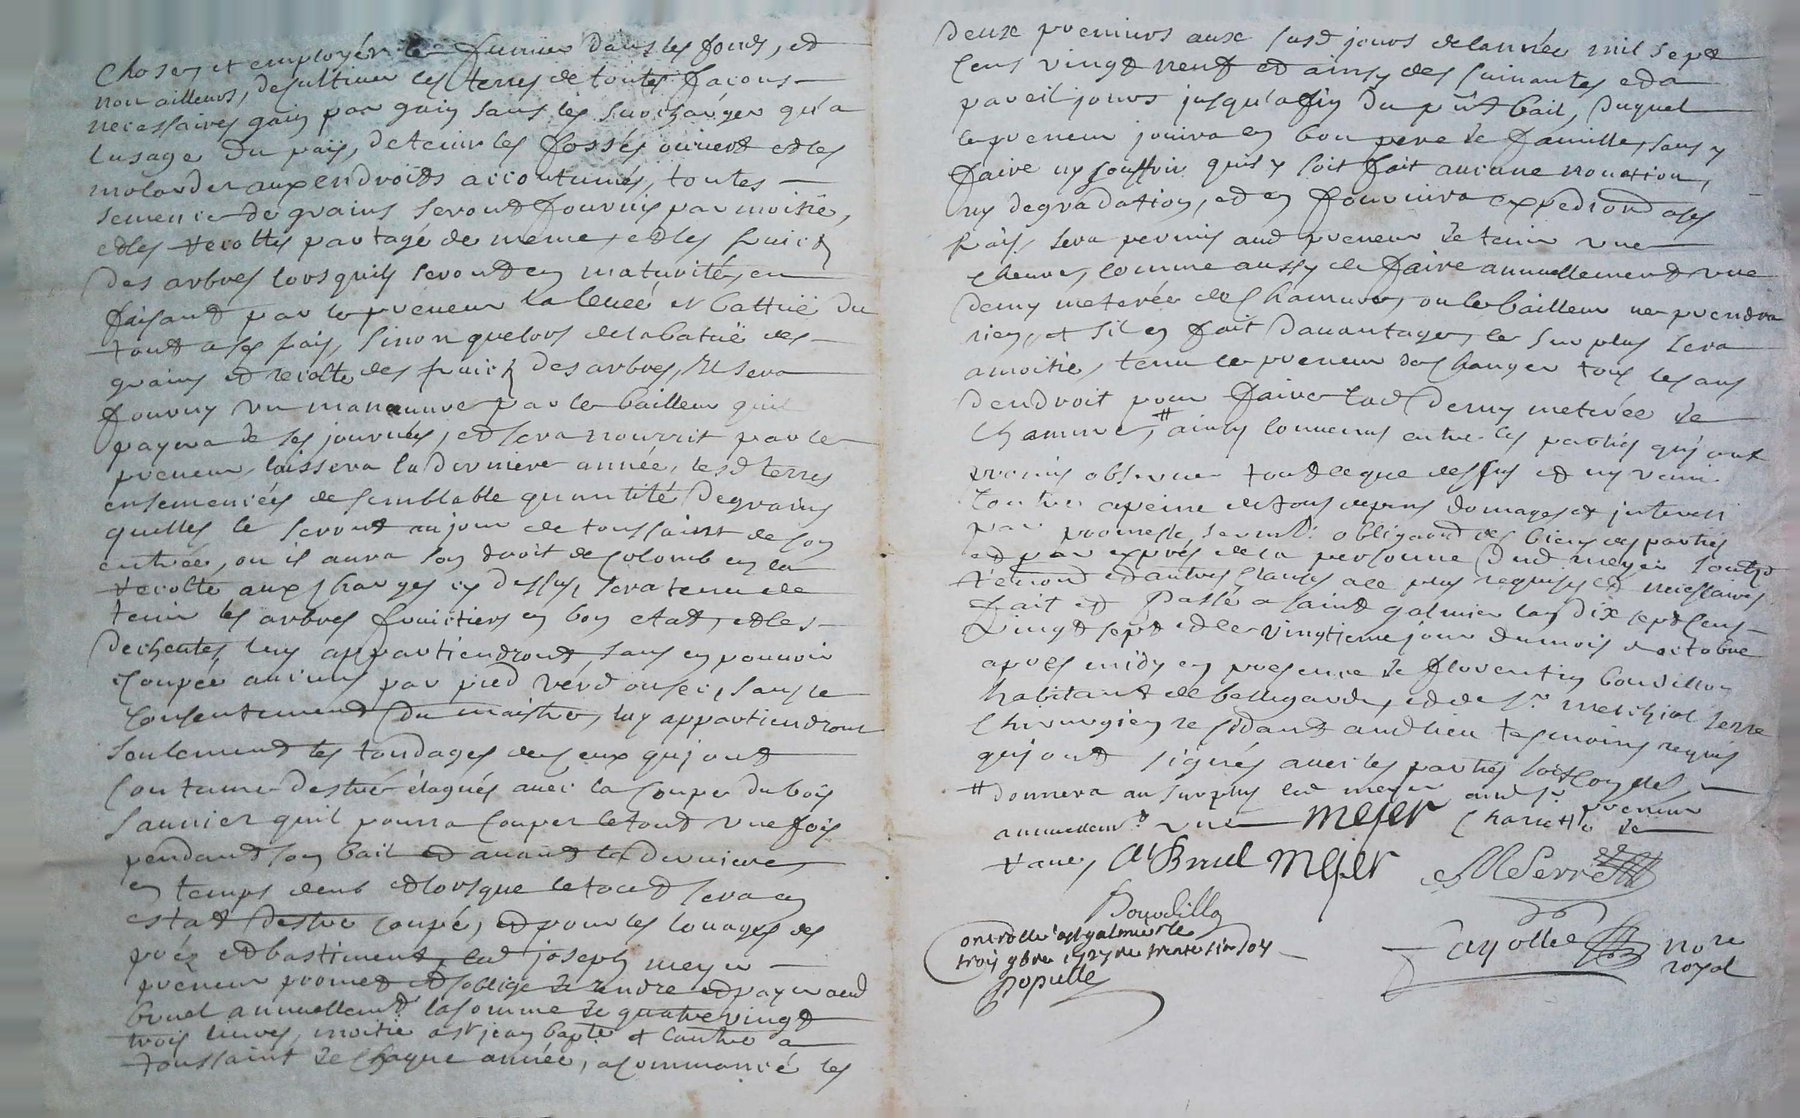 choses et employer le fumier dans les fonds, et
non ailleurs, de cultiver les terres de toutes facons
necessaires gain par gain sans les surcharger qu'a
lusage du païs, de tenir les fossés ouvert et les
aux endroits accoutumés, toutes
semence de grains seront fournis par moitié,
et les recoltes partagé de meme, et les fruicts
des arbres lorsquils seront en maturité, en
faisant par le preneur la leueé et battuë du
tout a ses frais, sinon que lors de la batuë des
grains et recolte des fruicts des arbres, Il sera
fourny un manœuvre par le bailleur quil
payera de ses journées, et sera nourrit par le
preneur, laissera la derniere année, lesd terres
ensemencées de semblable quantité de grains
quelles le seront au jour de toussaint de son
entrée, ou il aura son droit de colomb en la
recolte aux charges cy dessus, sera tenu de
tenir les arbres fruictiers en bon etat, et les
decheutes luy appartiendront, sans en pouvoir
couper aucuns par pied verd ou sec, sans le
consentement du maistre, luy appartiendront
seulement les tondages de ceux qui ont
coutume destre élagués avec la coupe du bois
saunier quil pourra couper le tout une fois
pendant son bail et avant la derniere
en temps deub et lorsque le tout sera en
estat destre coupé, et pour les louages des
préz et bastiment, led joseph meyer
preneur promet et soblige de rendre et payer aud
bruel annuellemt la somme de quatre vingt
trois livres, moitié a st jean bapte et lautre a
toussaint de chaque année, a commancé les
deux premiers aux susd jours de lannée mil sept
cens vingt neuf et ainsy des suivantes et a
pareil jours jusqu'a fin du pñt bail, duquel
le preneur jouira en bon pere de famille, sans y
faire ny souffrir quis y soit fait aucune novation,
ny degradation, et en fournira expedition a ses
frais, sera permis aud preneur de tenir une
chevre, comme aussy de faire annuellement une
demy meterée de chanvre, ou le bailleur ne prendra
rien, et sil en fait davantage, le surplus sera
a moitié, tenu le preneur de changer tous les ans
dendroit pour faire lad demy meterée de
chanvre, # ainsy convenus entre les parties qui ont
promis observer tout ce que dessus et ny venir
contre a peine de tous depens domages et interets
par promesse, sermt. obligaon des biens des parties
et par exprés de la personne dud meyer soubz
renond et autres clauses a ce plus requises et necessaires
fait et passé a saint galmier lan dix sept cens
vingt sept et le vingtieme jour du mois doctobre
apres midy en presence de florentin bouvillon
habitant de bellegarde, et de sr. melchiol serre
chirurgien residant aud lieu tesmoins requis
qui ont signés avec les parties
# donnera au surplus led meyer aud sr preneur
annuellemt une MEJER Charetté de
rave, Al Bruel MEJER MSerre
Bouvillon
Controllé a st galmier le
trois 9bre 1727 reçu trente six sols
Populle
Fayolle nore
royal